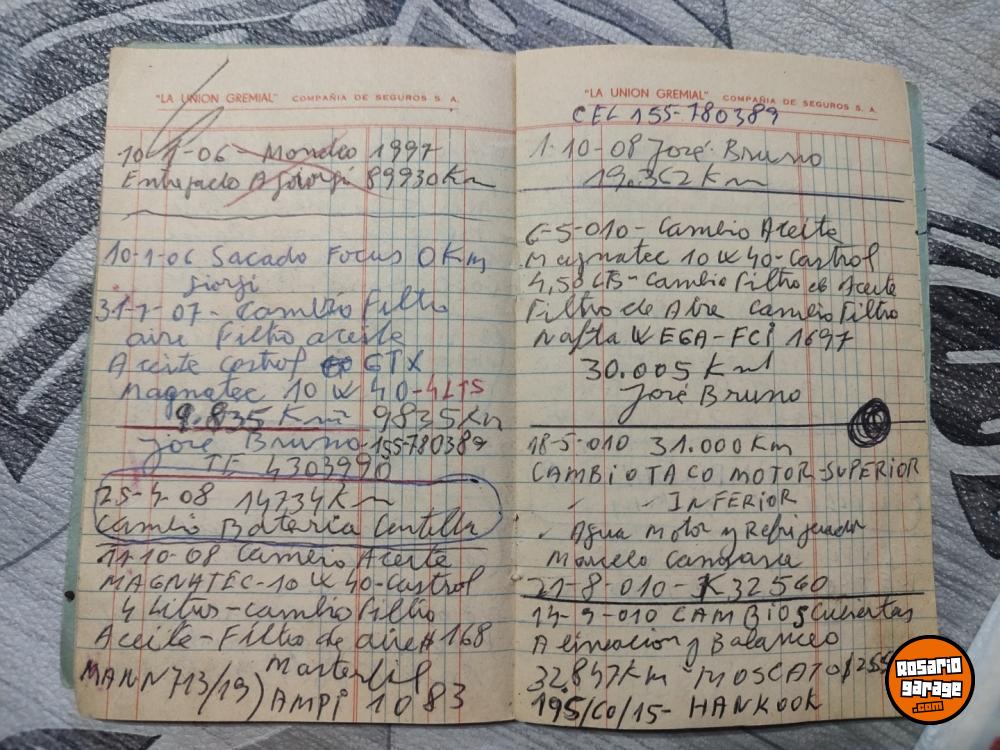 "LA UNION GREMIAL" COMPAÑIA DE SEGUROS S. A.
10-1-06 - Mondeo 1997
Entregado A Giorgi 89930 Km
10-1-06 Sacado Focus 0 Km
Giorgi
31-7-07 - Cambio Filtro
aire Filtro aceite
Aceite Castrol GTX
Magnatec 10 W 40 - 4 LTS
9.835 Km 9835 Km
José Bruno 155-780389
TE 4303990
25-4-08 14734 Km
Cambio Bateria Centella
11-10-08 Cambio Aceite
MAGNATEC-10 W 40-Castrol
4 Litros - cambio Filtro
Aceite - Filtro de aire A 168
Masterfil
MANN 713/19) AMPI 1083
"LA UNION GREMIAL" COMPAÑIA DE SEGUROS S. A.
CEL 155-780389
1-10-08 José Bruno
19.362 Km
6-5-010 - Cambio Aceite
Magnatec 10 W 40-Castrol
4,50 LTS - Cambio Filtro de Aceite
Filtro de Aire Cambio Filtro
Nafta WEGA-FCI 1697
30.005 Km
José Bruno
18-5-010 31.000 Km
CAMBIO TACO MOTOR-SUPERIOR
INFERIOR
Agua Motor y Refrigerador
Marcelo
21-8-010 - K 32560
14-9-010 CAMBIO 5 Cubiertas
Alineacion y Balanceo
32.847 Km - MOSCATO $ 255
195/60/15 - HANKOOK
ROSARIO
GARAGE
.COM